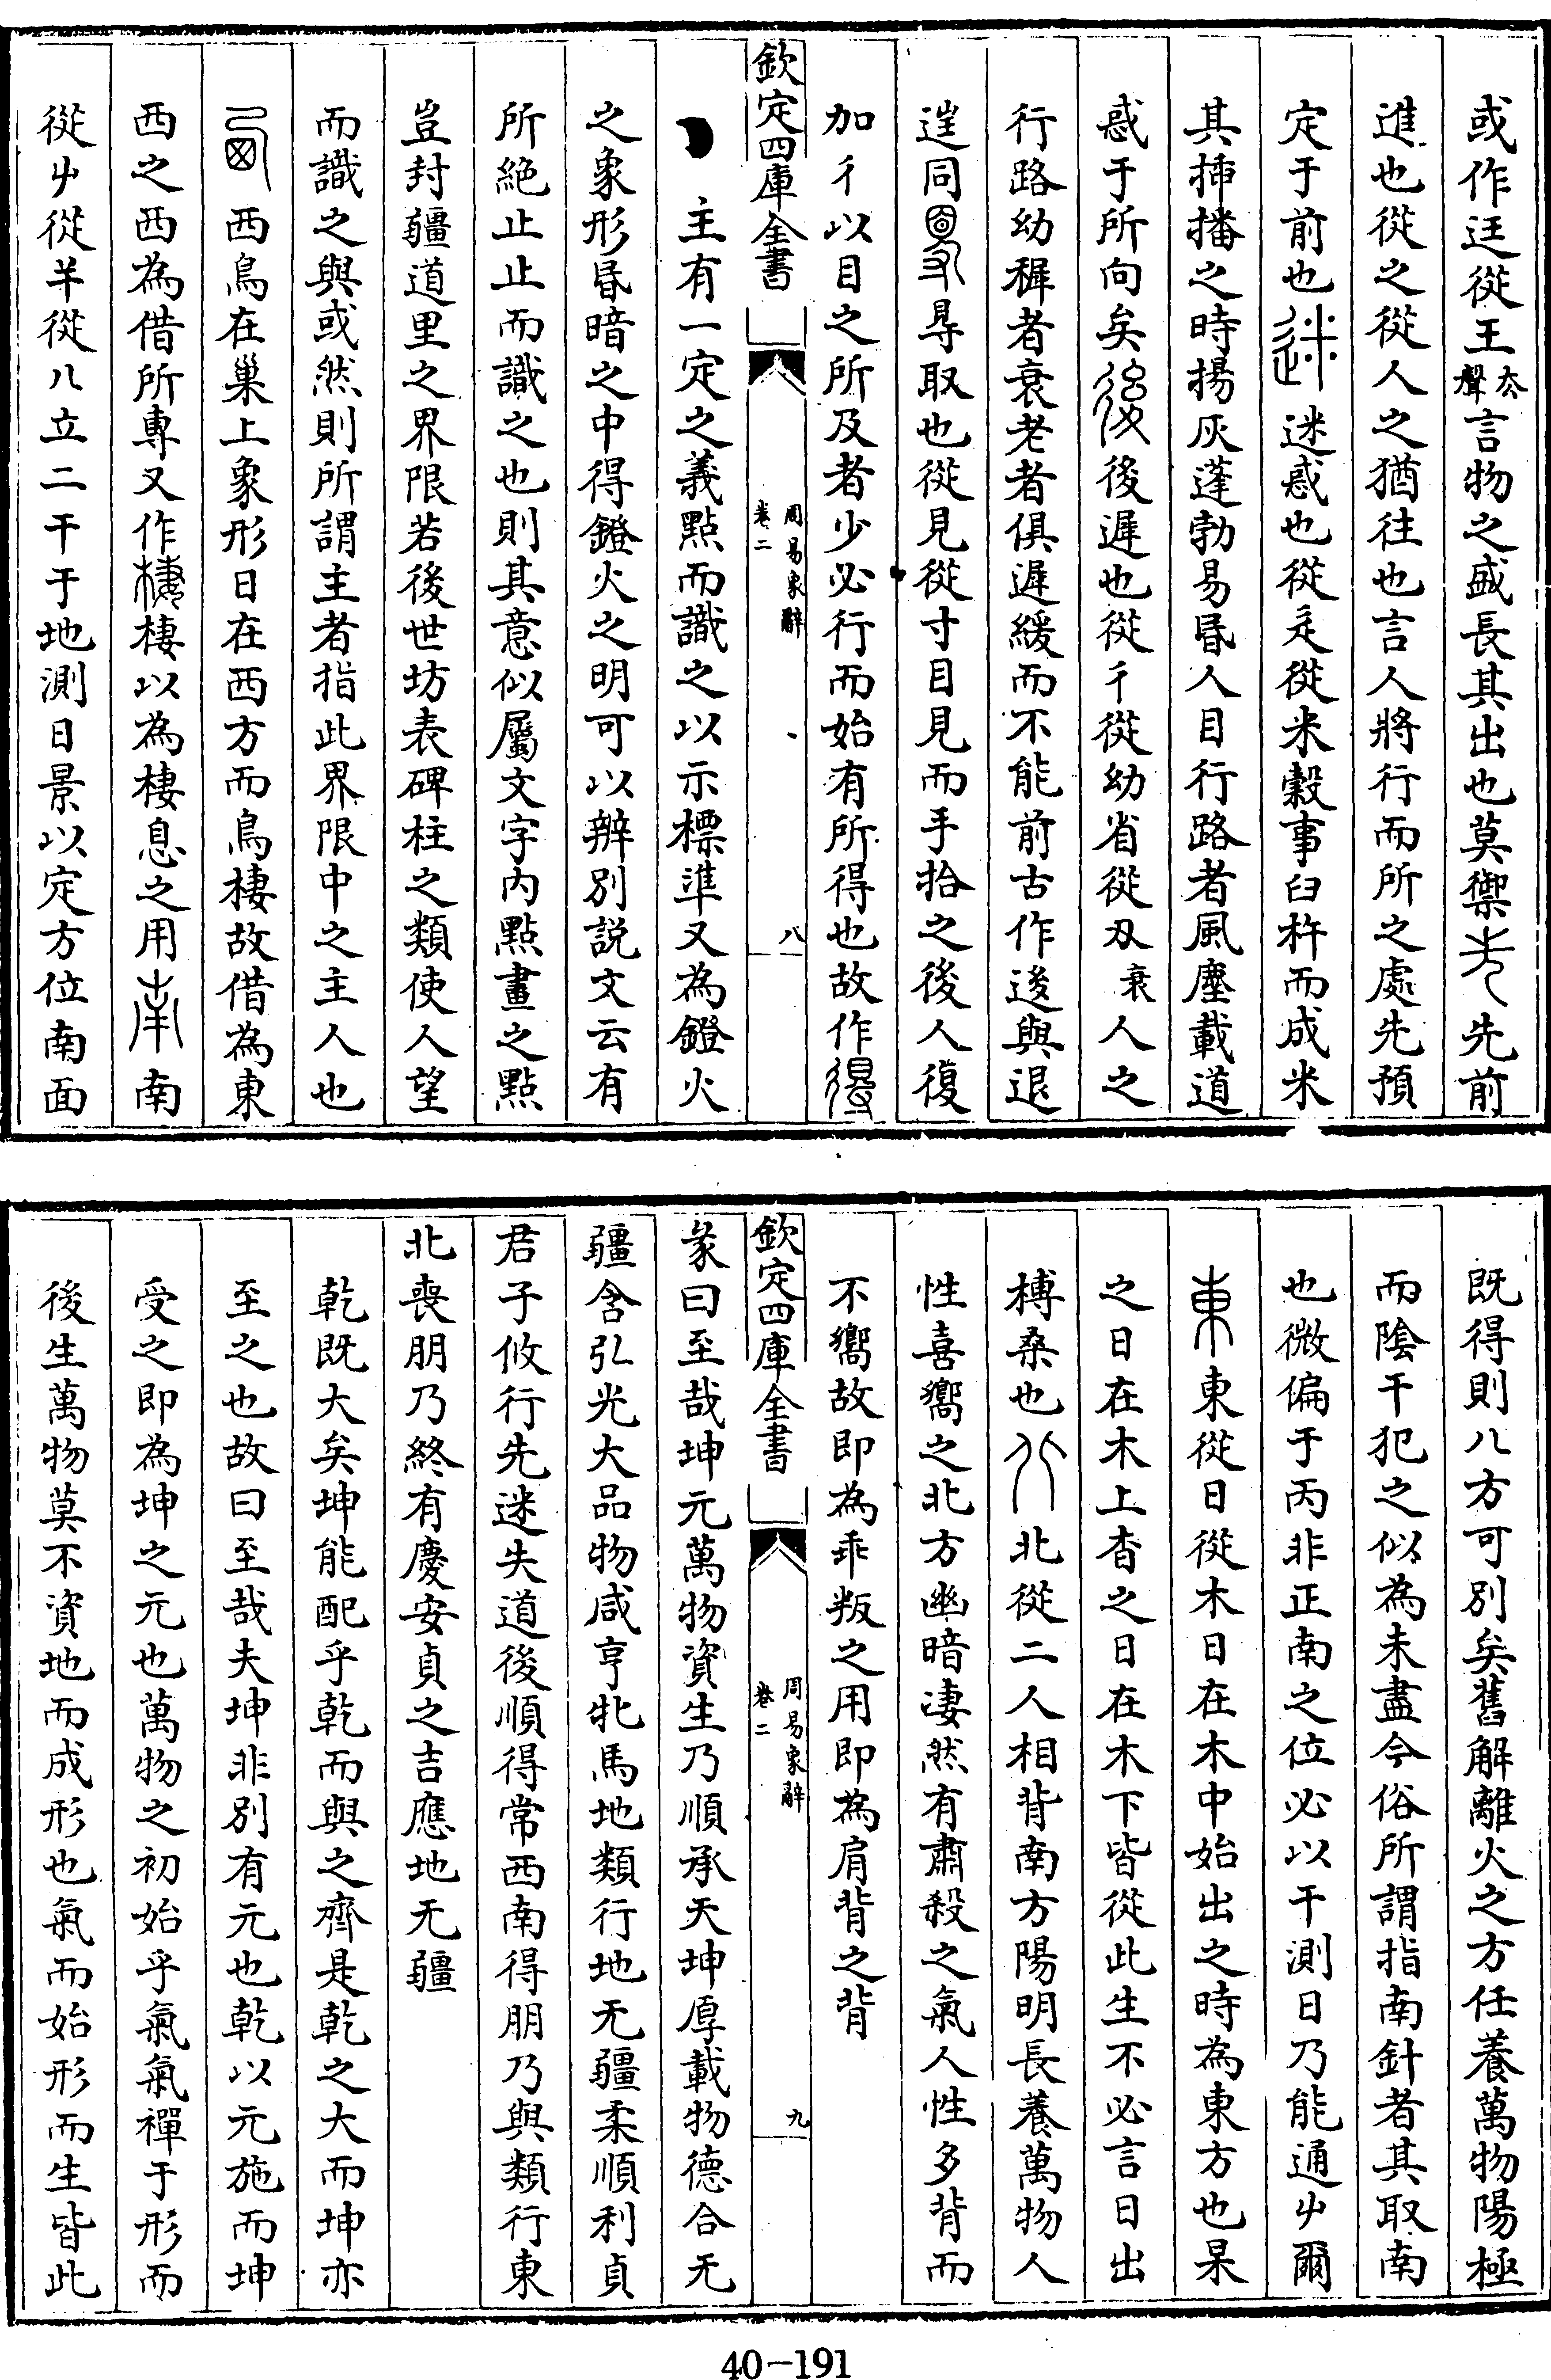 或作迋從王去聲言物之盛長其出也莫禦先先前
進也從之從人之猶往也言人將行而所之處先預
定于前也迷迷惑也從辵從米穀事臼杵而成米
其揷播之時揚灰蓬勃易昬人目行路者風塵載道
惑于所向矣後後遲也從彳從幼省從夊衰人之
行路幼穉者衰老者俱遲緩而不能前古作逡與退
同㝵取也從見從寸目見而手拾之後人復
加彳以目之所及者少必行而始有所得也故作得
欽定四庫全書
周易象辭
卷二
八
主有一定之義點而識之以示標準又為鐙火
之象形昬暗之中得鐙火之明可以辨別説文云有
所絶止止而識之也則其意似屬文字内點畫之點
豈封疆道里之界限若後世坊表碑柱之類使人望
而識之與或然則所謂主者指此界限中之主人也
西西鳥在巢上象形日在西方而鳥棲故借為東
西之西為借所專又作棲棲以為棲息之用南南
從屮從𢆉從八立二干于地測日景以定方位南面
既得則八方可別矣舊解離火之方任養萬物陽極
而陰干犯之似為未盡今俗所謂指南針者其取南
也微偏于丙非正南之位必以干測日乃能通屮爾
東東從日從木日在木中始出之時為東方也杲
之日在木上杳之日在木下皆從此生不必言日出
榑桑也北北從二人相背南方陽明長養萬物人
性喜嚮之北方幽暗凄然有肅殺之氣人性多背而
不嚮故即為乖叛之用即為肩背之背
欽定四庫全書
周易象辭
卷二
九
彖曰至哉坤元萬物資生乃順承天坤厚載物德合无
疆含弘光大品物咸亨牝馬地類行地无疆柔順利貞
君子攸行先迷失道後順得常西南得朋乃與類行東
北喪朋乃終有慶安貞之吉應地无疆
乾既大矣坤能配乎乾而與之齊是乾之大而坤亦
至之也故曰至哉夫坤非別有元也乾以元施而坤
受之即為坤之元也萬物之初始乎氣氣禪于形而
後生萬物莫不資地而成形也氣而始形而生皆此
40-191